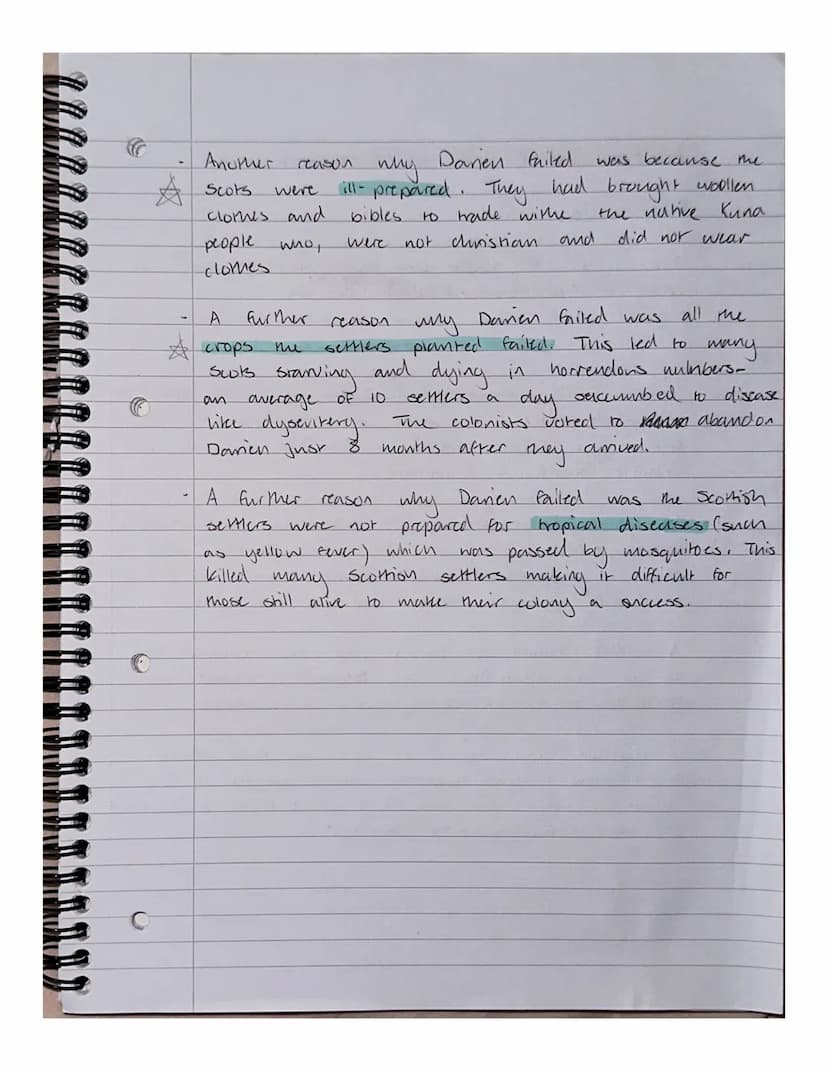 - Another reason why Darien failed was because the
Scots were ill-prepared. They had brought woollen
clothes and bibles to trade withe the native Kuna
people who, were not christian and did not wear
clothes
- A further reason why Darien failed was all the
crops the settlers planted failed. This led to many
Scots starving and dying in horrendous numbers-
an average of 10 settlers a day succumbed to disease
like dysentery. The colonists voted to abandon
Darien just 8 months after they arrived.
- A further reason why Darien failed was the Scottish
settlers were not prepared for tropical diseases (such
as yellow fever) which was passed by mosquitoes. This
killed many Scottish settlers making it difficult for
those still alive to make their colony a success.